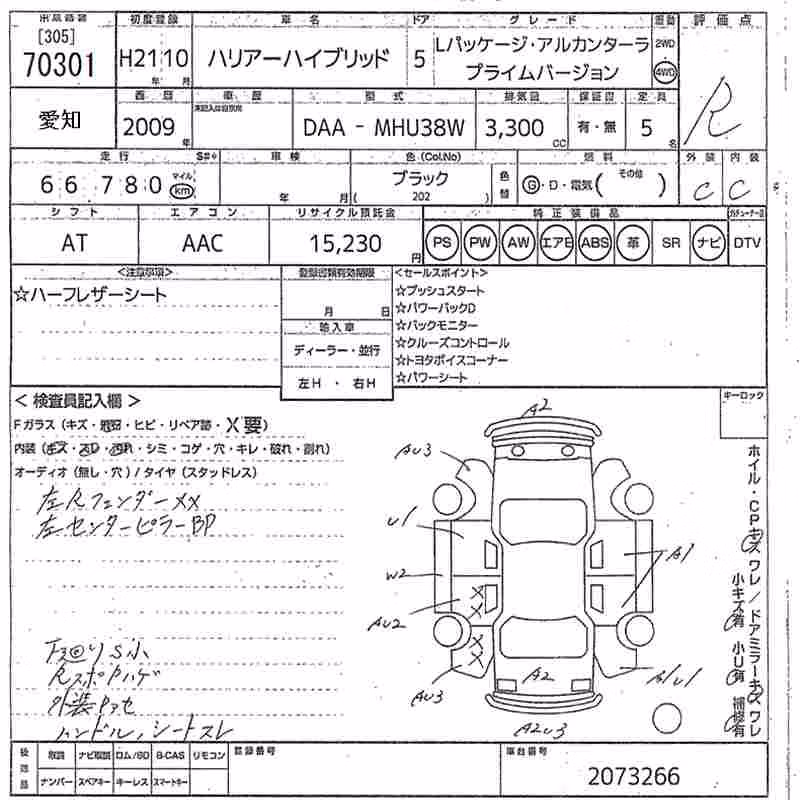 出品番号 初度登録 車名 ドア グレード 駆動 評価点
[305]
70301 H21 10 ハリアーハイブリッド 5 Lパッケージ・アルカンターラ 2WD
プライムバージョン 4WD
年 月
R
愛知
西暦 車歴 型式 排気量 保証書 定員
2009 年 DAA - MHU38W 3,300 CC 有・無 5 名
走行 車検 色(Col.No) 燃料 外装 内装
66 780 マイル km 年 月 ブラック 色替 G・D・電気( その他 ) C C
( 202 )
シフト エアコン リサイクル預託金 純正装備品
AT AAC 15,230 円 PS PW AW エアB ABS 革 SR ナビ DTV
<注意事項> 登録書類有効期限 <セールスポイント>
☆ハーフレザーシート
月 日
輸入車
ディーラー・並行
左H ・ 右H
☆プッシュスタート
☆パワーバックD
☆バックモニター
☆クルーズコントロール
☆トヨタボイスコーナー
☆パワーシート
キーロック
<検査員記入欄>
Fガラス(キズ・飛石・ヒビ・リペア跡・X要)
内装(キズ・スレ・汚れ・シミ・コゲ・穴・キレ・破れ・割れ)
オーディオ(無し・穴)/タイヤ(スタッドレス)
左Rフェンダー XX
左センターピラー BP
下廻りS小
RスポPハゲ
外装Pアセ
ハンドル,シートスレ
A2
AU3
U1
A1
W2
AU2
AU3
A2
A2U3
ホイル・CPキズ ワレ/ドアミラーキズ ワレ
小キズ有 小U有 補修有
後送品 取説 ナビ取説 ロム/SD B-CAS リモコン
ナンバー スペアキー キーレス スマートキー
登録番号
車台番号
2073266